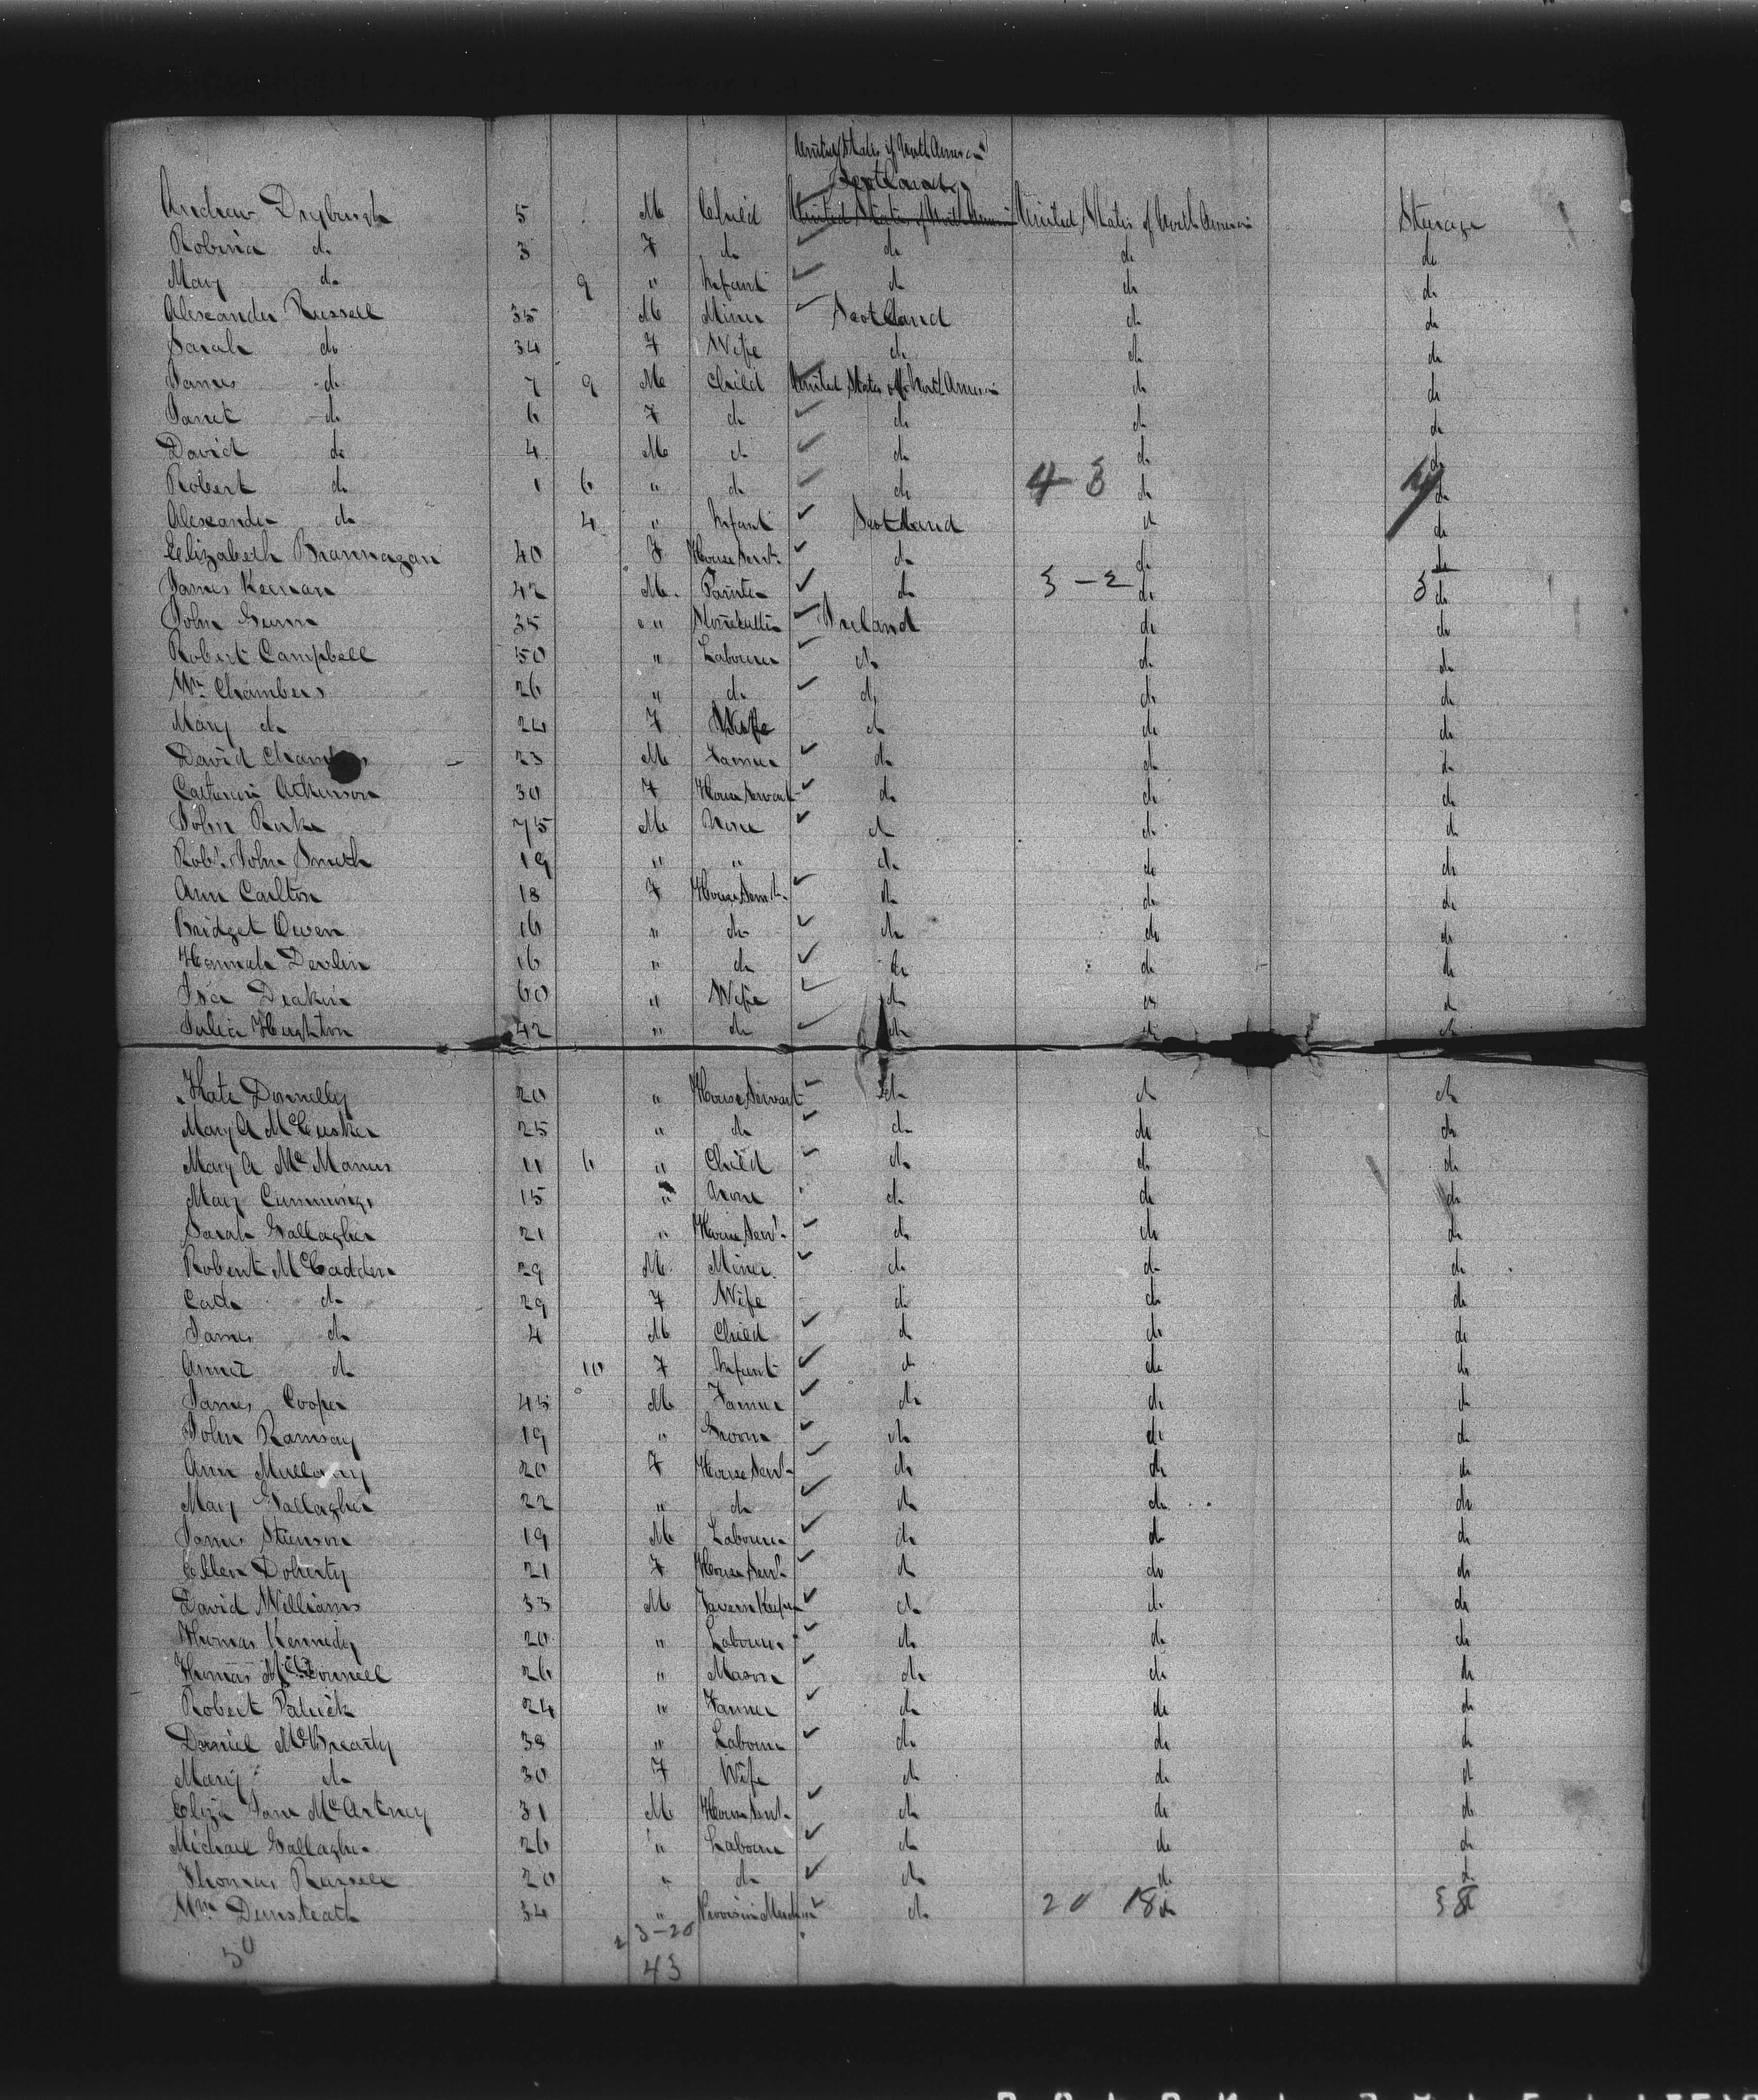 United States of North America
Scotland
Andrew Dryburgh 5 M Child United States of North America United States of North America Steerage
Robina do 3 F do do do do
Mary do 9 " Infant do do do
Alexander Russell 35 M Miner Scotland do do
Sarah do 34 F Wife do do do
James do 7 9 M Child United States of North America do do
Janet do 6 F do do do do
David do 4 M do do do do
Robert do 1 6 " do do 4-3 do do
Alexander do 4 " Infant Scotland do do
Elizabeth Brannagan 40 F House Servt. do do do
James Keenan 42 M. Painter do 3-2 do 3 do
John Gunn 35 " Stonecutter Ireland do do
Robert Campbell 50 " Labourer do do do
Wm Chambers 26 " do do do do
Mary do 24 F Wife do do do
David Cham 23 M Farmer do do do
Catherine Atkinson 30 F House Servant do do do
John Rorke 75 M None do do do
Robt. John Smith 19 " " do do do
Ann Carlton 18 F House Servt. do do do
Bridget Owen 16 " do do do do
Hannah Devlin 16 " do do do do
Deakin 60 " Wife do do do
Julia Hughton 42 " do do do do
Kate Donnelly 20 " House Servant do do do
Mary A McCusker 25 " do do do do
Mary A McManus 11 6 " Child do do do
Mary Cummings 15 " None do do do
Sarah Gallagher 21 " House Servt. do do do
Robert McCadden 29 M. Miner do do do
Cath do 29 F Wife do do do
James do 4 M Child do do do
Annie do 10 F Infant do do do
James Cooper 45 M Farmer do do do
John Ramsay 19 " Groom do do do
Ann Mullany 20 F House Servt. do do do
Mary Gallagher 22 " do do do do
James Stenson 19 M Labourer do do do
Ellen Doherty 21 F House Servt. do do do
David Williams 33 M Tavern Keeper do do do
Thomas Kennedy 20 " Labourer do do do
Thomas McConnell 26 " Mason do do do
Robert Patrick 24 " Farmer do do do
Daniel McBrearty 38 " Labourer do do do
Mary do 30 F Wife do do do
Eliza Jane McArtney 31 M House Servt. do do do
Michael Gallagher 26 " Labourer do do do
Thomas Russell 20 " do do do do
Wm Dunsteath 34 " Provision Merchant do 20 18 do 38
3-20
50 43